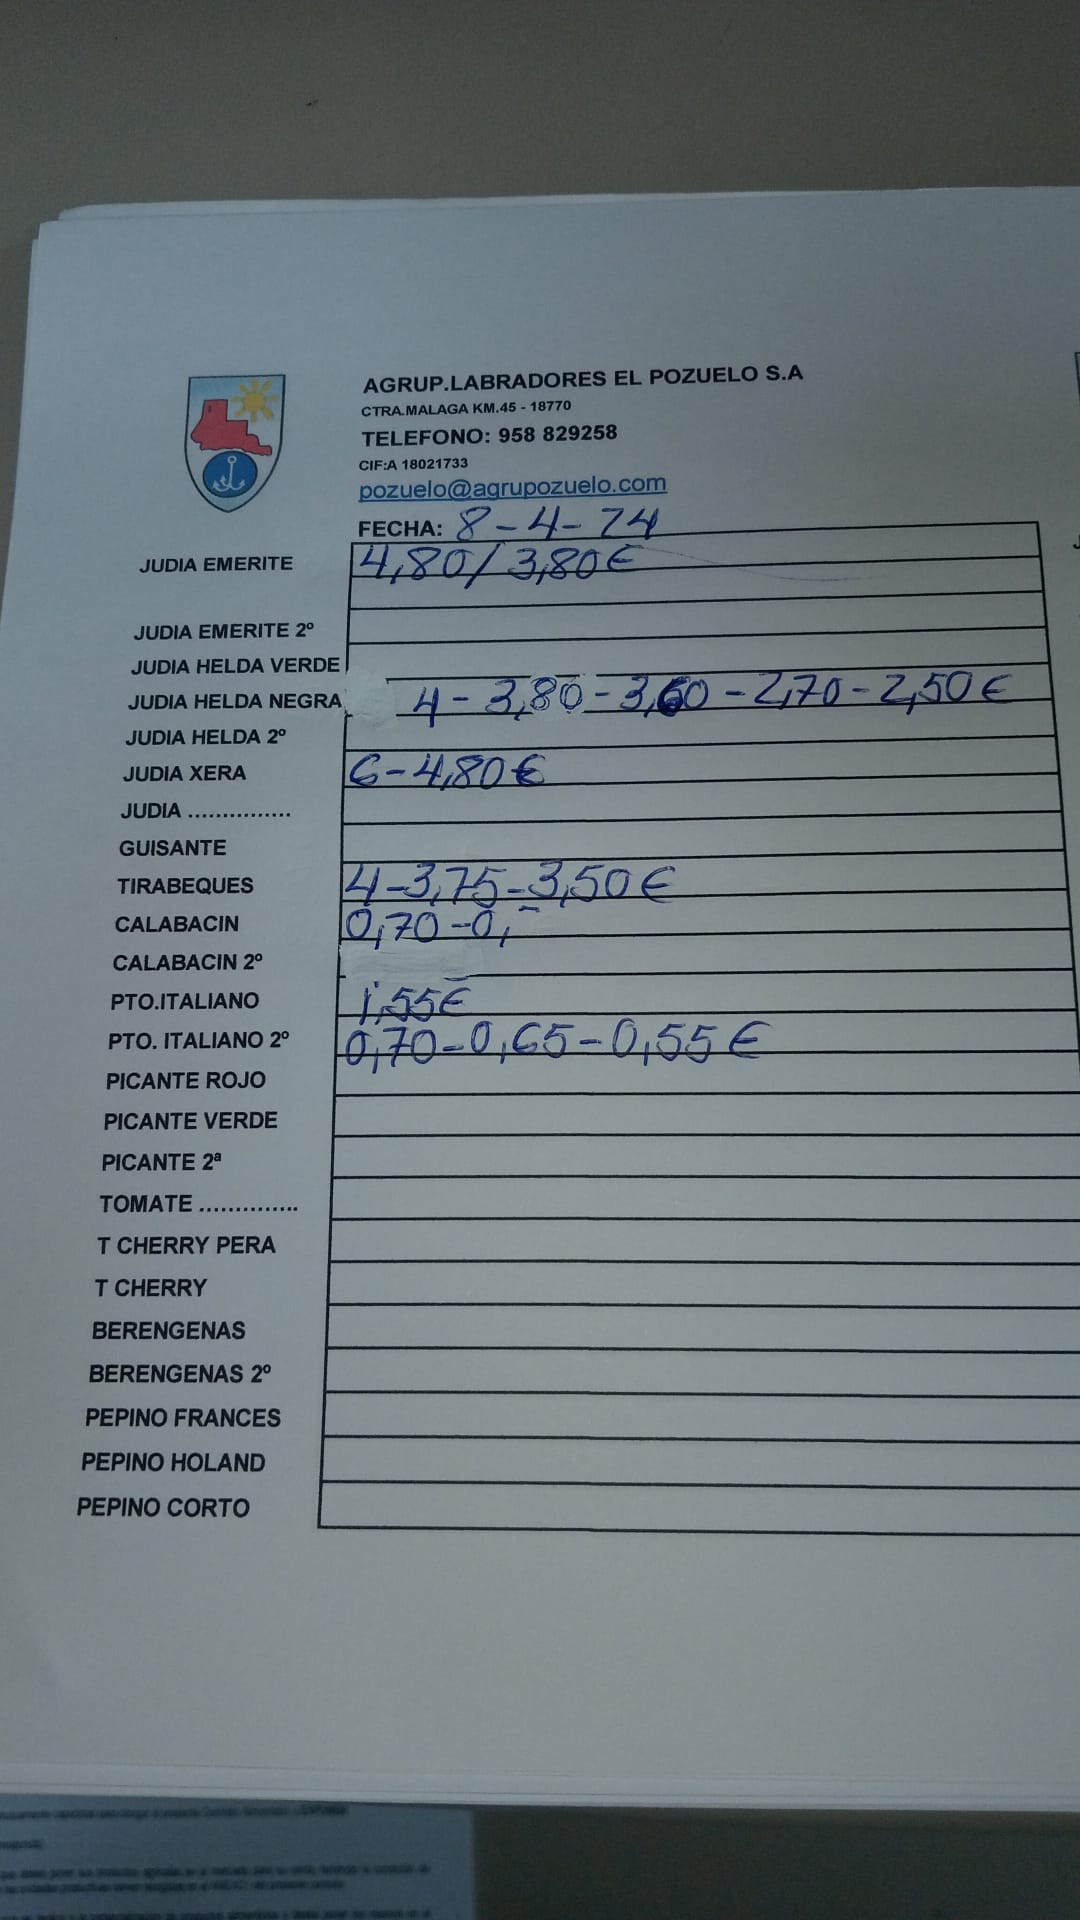 AGRUP.LABRADORES EL POZUELO S.A
CTRA.MALAGA KM.45 - 18770
TELEFONO: 958 829258
CIF:A 18021733
pozuelo@agrupozuelo.com
FECHA: 8-4-24
JUDIA EMERITE 4,80/3,80€
JUDIA EMERITE 2º
JUDIA HELDA VERDE
JUDIA HELDA NEGRA 4-3,80-3,60-2,70-2,50€
JUDIA HELDA 2º
JUDIA XERA 6-4,80€
JUDIA ...............
GUISANTE
TIRABEQUES 4-3,75-3,50€
CALABACIN 0,70-0,
CALABACIN 2º
PTO.ITALIANO 1,55€
PTO. ITALIANO 2º 0,70-0,65-0,55€
PICANTE ROJO
PICANTE VERDE
PICANTE 2ª
TOMATE ..............
T CHERRY PERA
T CHERRY
BERENGENAS
BERENGENAS 2º
PEPINO FRANCES
PEPINO HOLAND
PEPINO CORTO